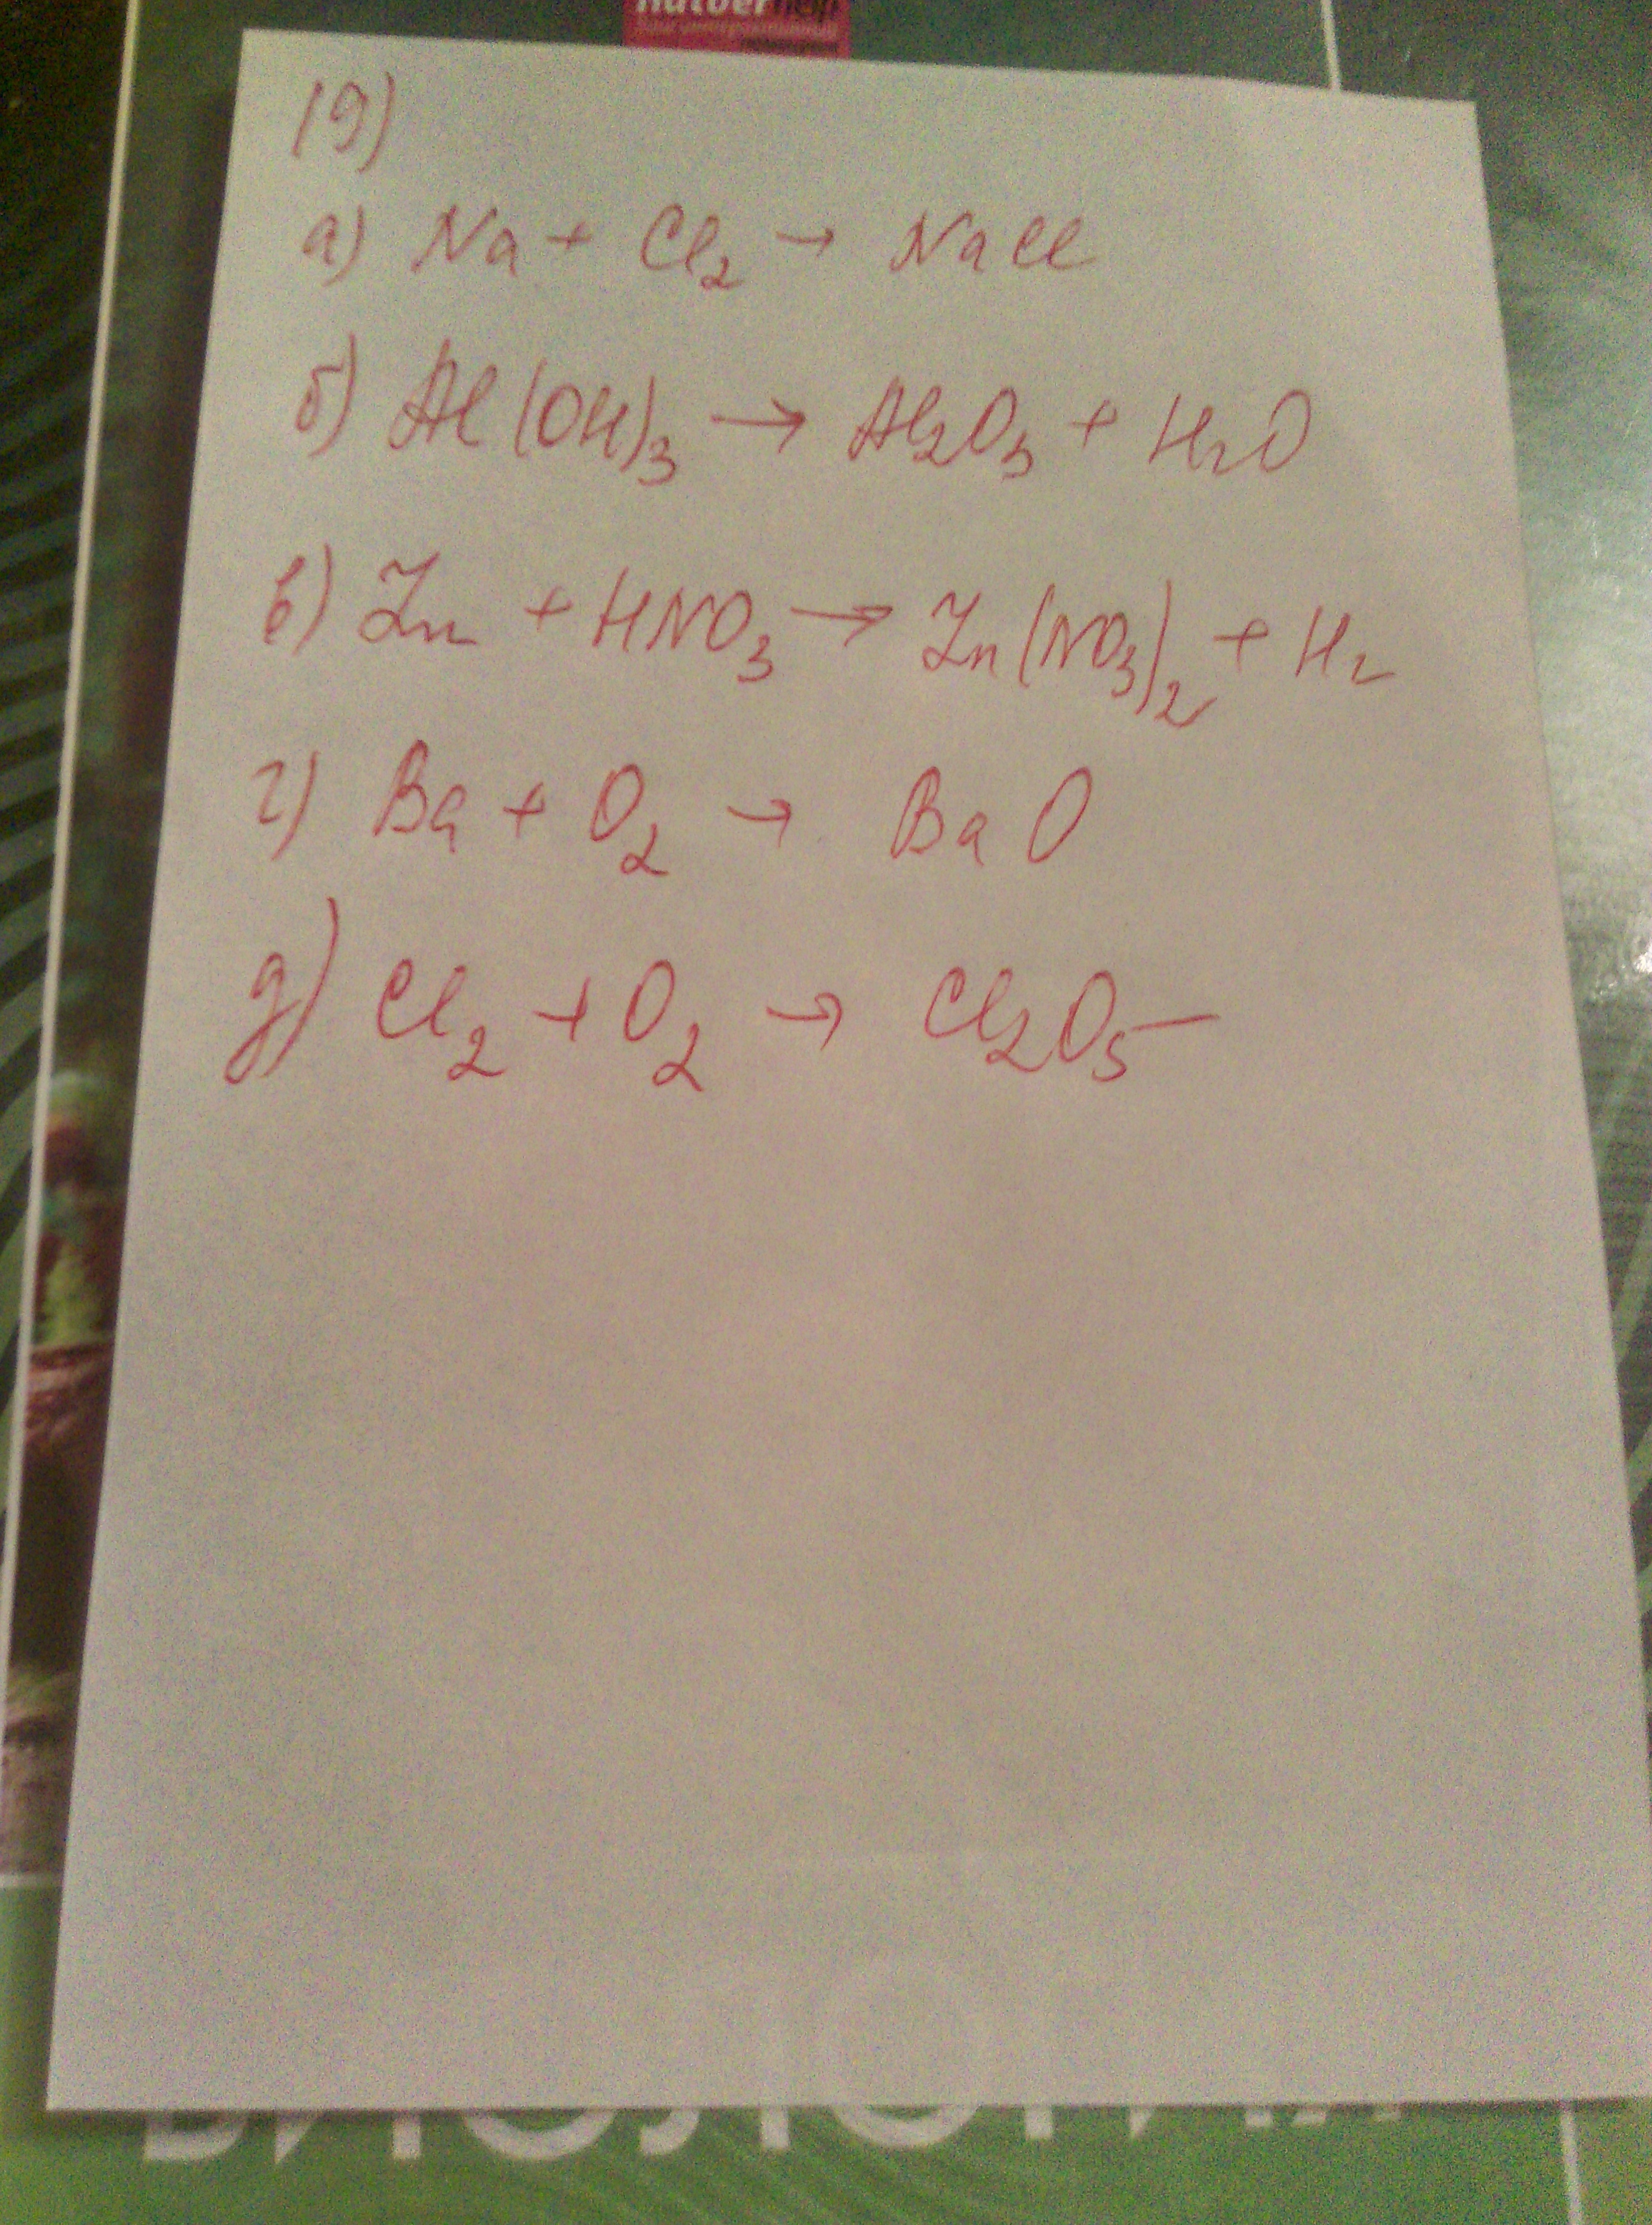 19)
а) Na + Cl₂ → NaCl
б) Al(OH)₃ → Al₂O₃ + H₂O
в) Zn + HNO₃ → Zn(NO₃)₂ + H₂
г) Ba + O₂ → BaO
д) Cl₂ + O₂ → Cl₂O₅
БИОЛОГИЯ